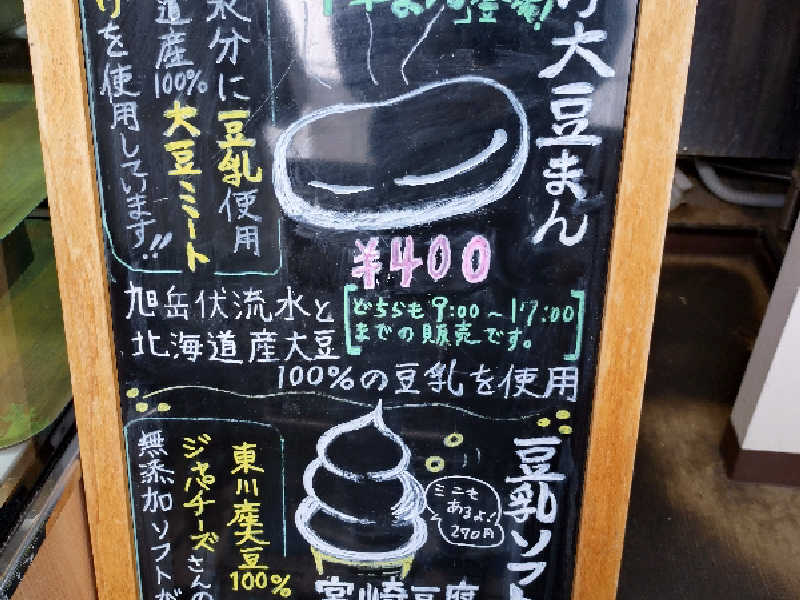 大豆まん
水分に豆乳使用
道産100%大豆ミート
を使用しています!!
¥400
旭岳伏流水と
北海道産大豆
100%の豆乳を使用
[どちらも9:00～17:00
までの販売です。]
豆乳ソフト
ミニも
あるよ!
290円
東川産大豆100%
ジャパチーズさんの
無添加ソフトが
宮崎豆腐